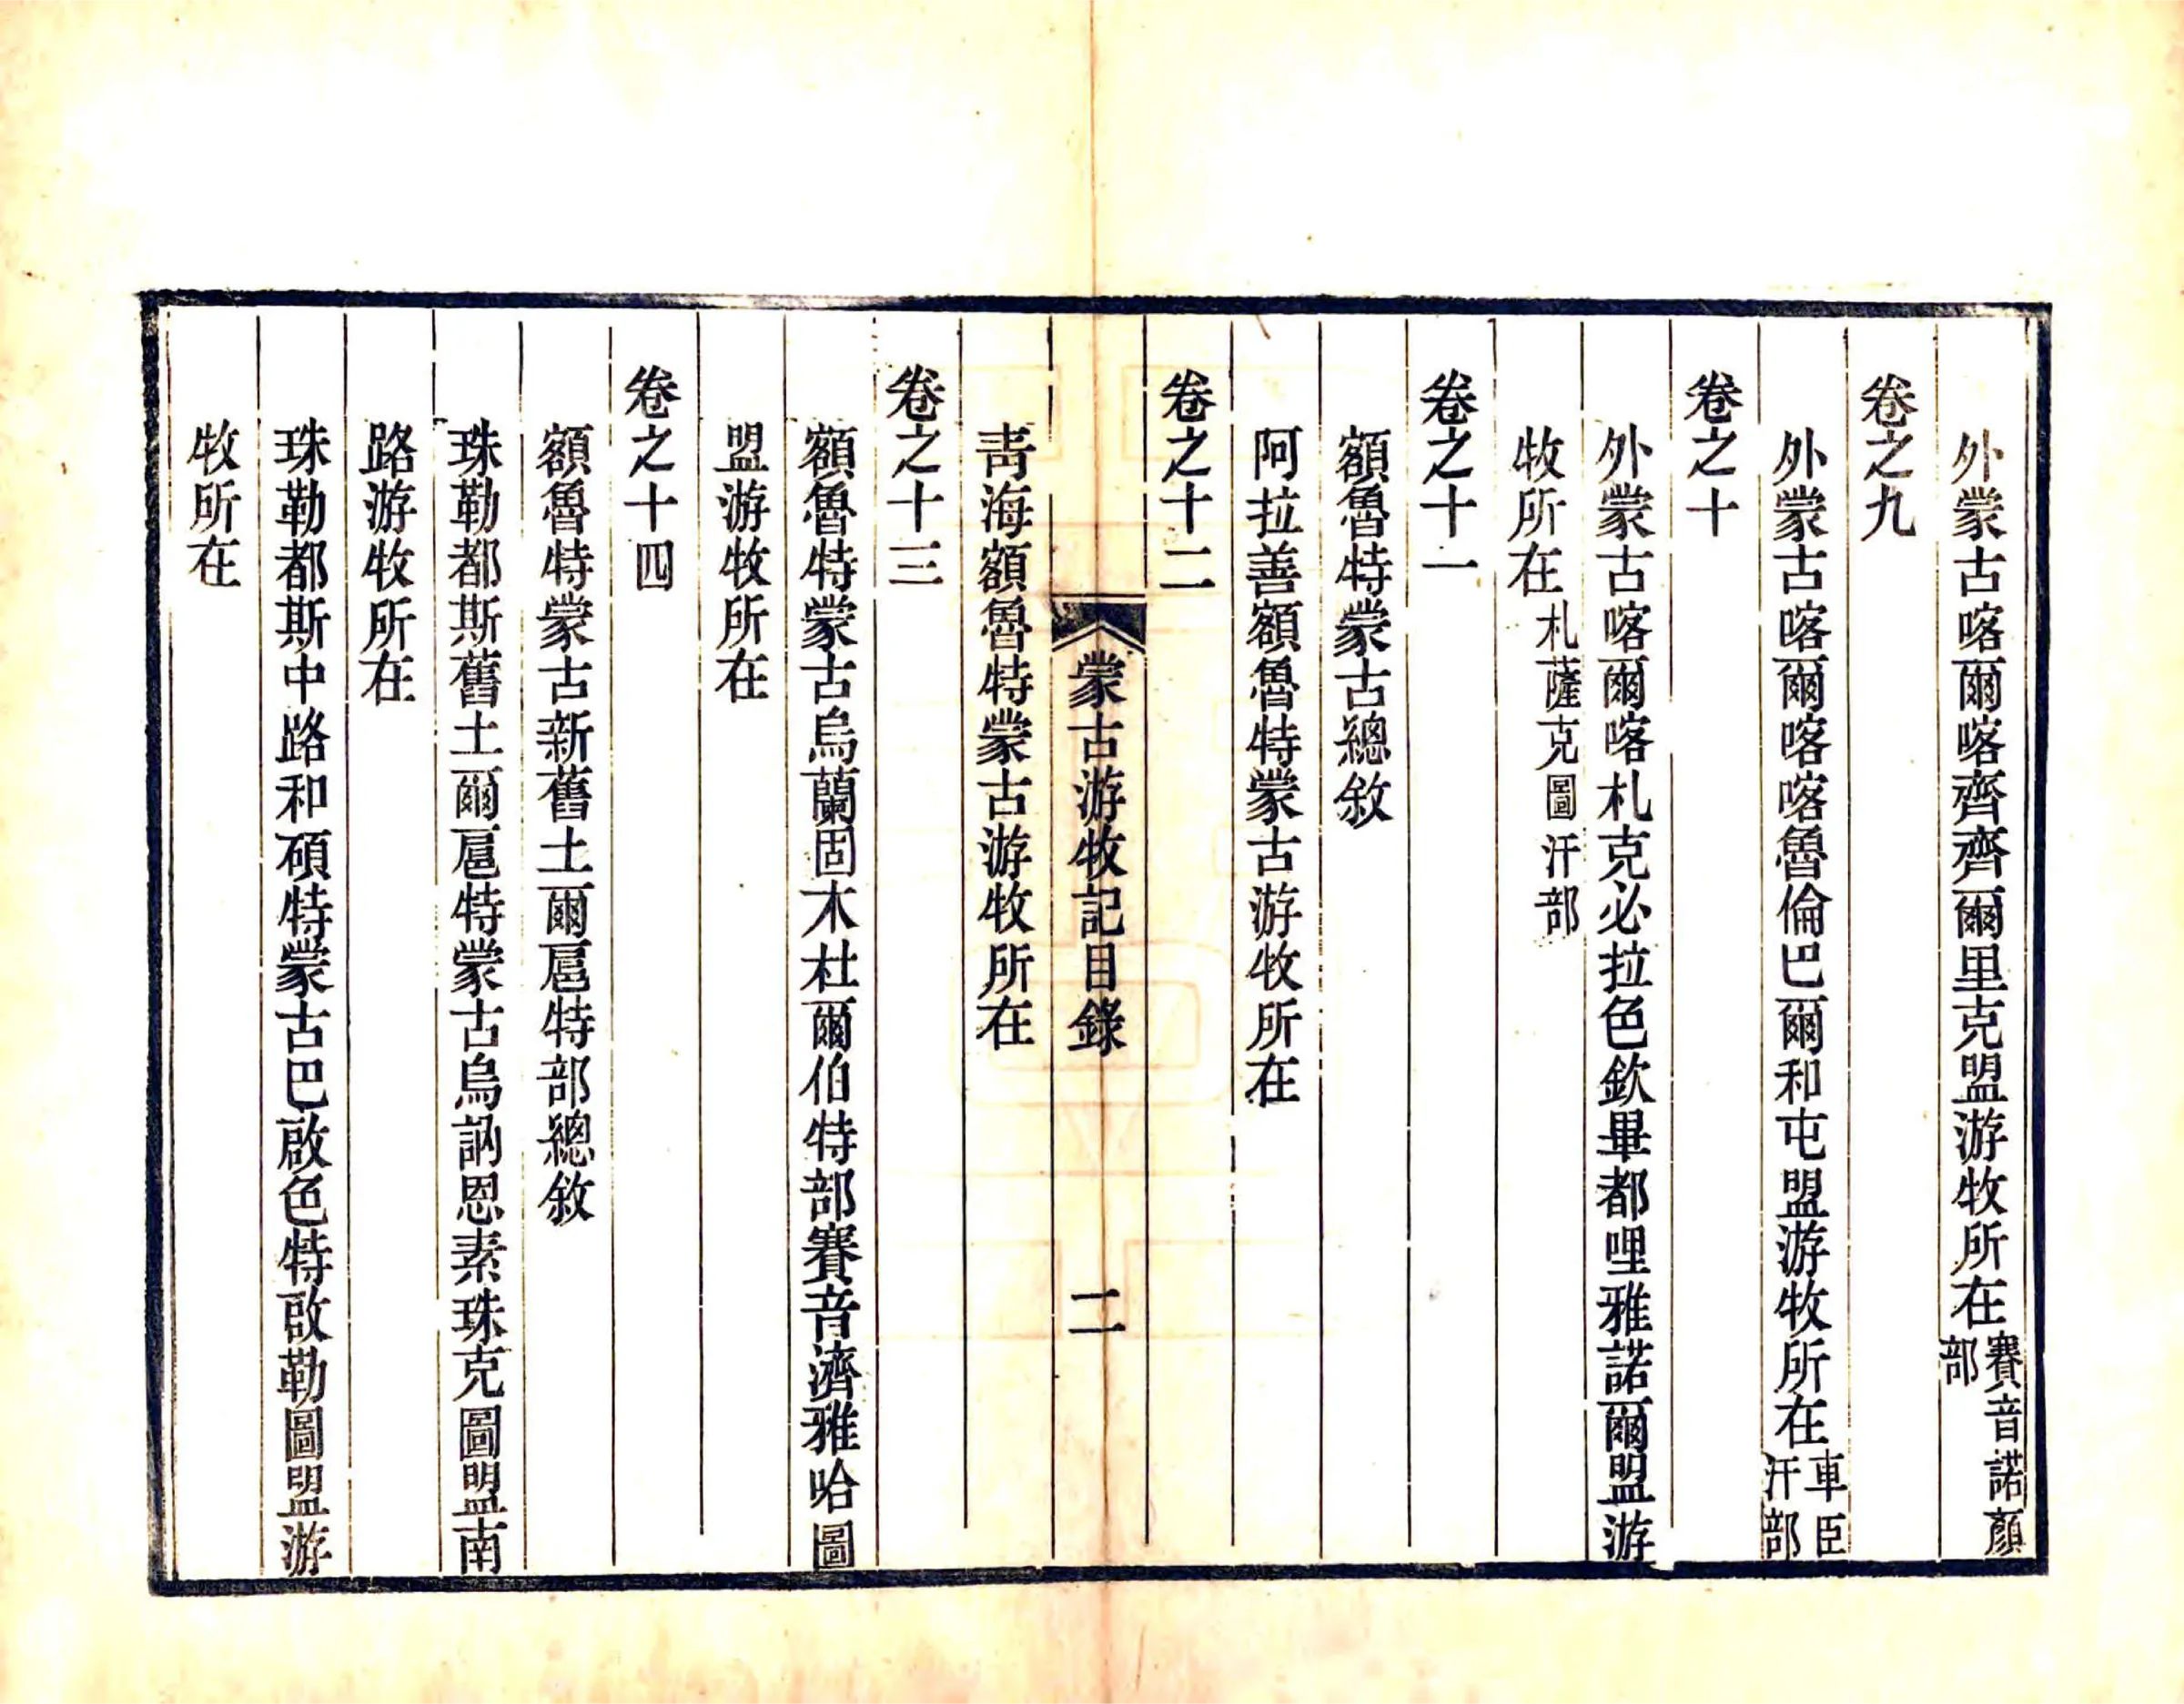 外蒙古喀爾喀齊齊爾里克盟游牧所在賽音諾顏部
卷之九
外蒙古喀爾喀喀魯倫巴爾和屯盟游牧所在車臣汗部
卷之十
外蒙古喀爾喀札克必拉色欽畢都哩雅諾爾盟游
牧所在札薩克圖汗部
卷之十一
額魯特蒙古總敘
阿拉善額魯特蒙古游牧所在
卷之十二
蒙古游牧記目錄 二
青海額魯特蒙古游牧所在
卷之十三
額魯特蒙古烏蘭固木杜爾伯特部賽音濟雅哈圖
盟游牧所在
卷之十四
額魯特蒙古新舊土爾扈特部總敘
珠勒都斯舊土爾扈特蒙古烏訥恩素珠克圖盟南
路游牧所在
珠勒都斯中路和碩特蒙古巴啟色特啟勒圖盟游
牧所在